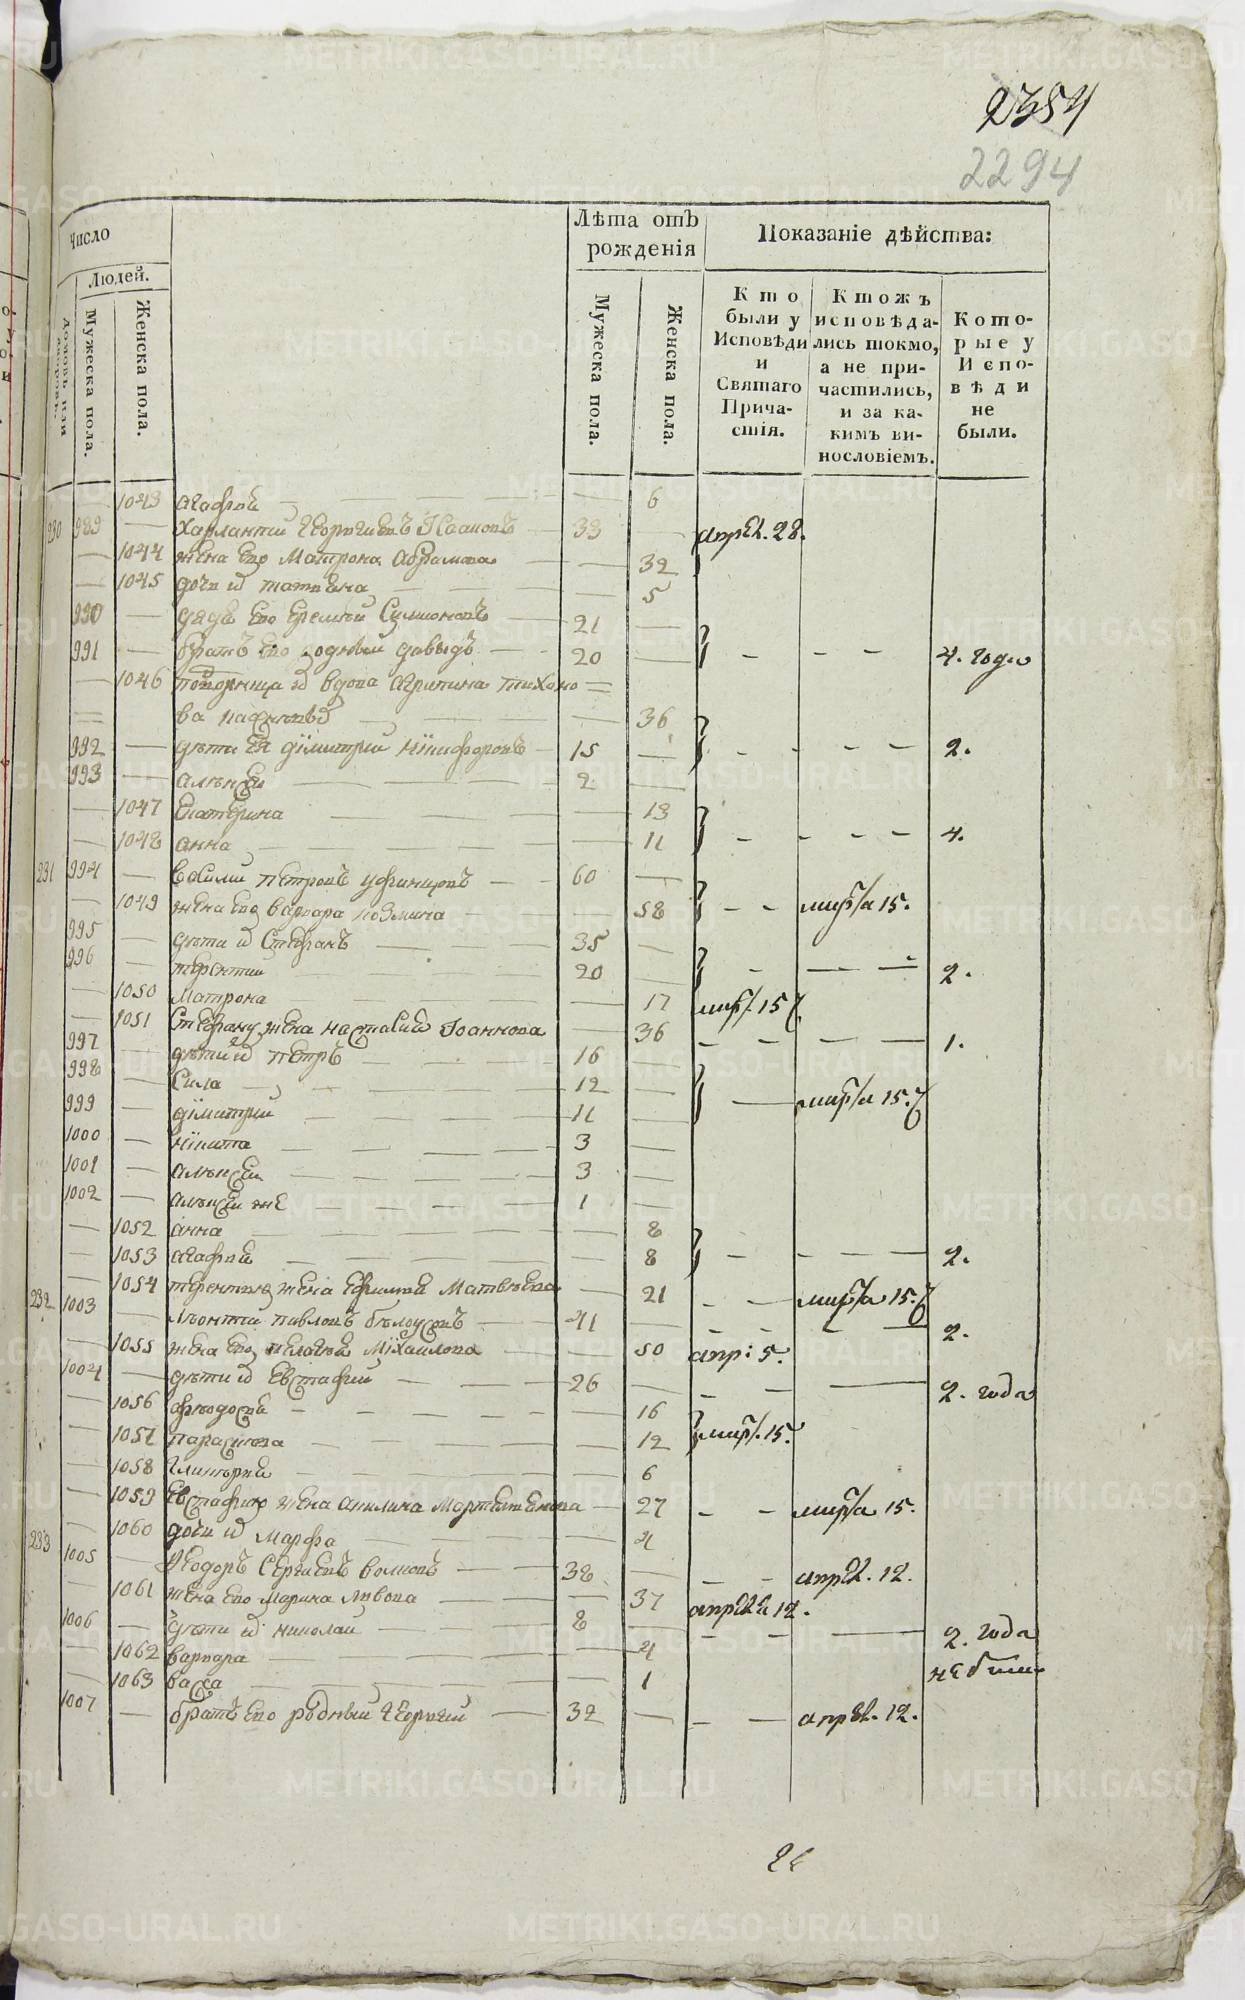 2354
2294
Число
Людей.
домовъ или дворовъ.
Мужеска пола.
Женска пола.
Лѣта отъ рожденія
Мужеска пола.
Женска пола.
Показаніе дѣйства:
Кто были у Исповѣди и Святаго Прича-стія.
Ктожъ исповѣда-лись токмо, а не при-частились, и за ка-кимъ ви-нословіемъ.
Кото-рые у Испо-вѣди не были.
1043 агафія 6
230 989 Харлантий Георгиевъ 33 апрѣл. 28.
1044 жена его Матрона Абрамова 32
1045 дочь их татиѣна 5
990 дядя его Еремѣй Симионовъ 21
991 братъ его родный давыдъ 20 4. года
1046 их вдова Агрипина тихоно=
ва 36
992 дѣти ея димитрий никифоровъ 15 2.
993 алѣксѣй 2
1047 Екатерина 13
1048 анна 11 4.
231 994 василий петровъ уфинцовъ 60
1049 жена его варвара козмина 58 марта 15.
995 дѣти их Стефанъ 35
996 терентий 20 2.
1050 Матрона 17 мар. 15
1051 Стефану жена настасия Іоаннова 36 1.
997 дѣти их петръ 16
998 Сила 12
999 димитрий 11 марта 15.
1000 никита 3
1001 алѣксѣй 3
1002 алѣксѣй же 1
1052 анна 8
1053 агафия 8 2.
1054 терентию жена Ефимия Матвѣева 21 марта 15.
232 1003 лѣонтий павловъ бѣлоусовъ 41 2.
1055 жена его пелагѣя Михаилова 50 апр: 5.
1004 дѣти их Евстафий 26 2. года
1056 фѣодосия 16
1057 параскѣва 12 мар. 15.
1058 гликѣрия 6
1059 Евстафию жена акилина 27 марта 15.
1060 дочь их Марфа 4
233 1005 Феодоръ Сергиевъ волковъ 38 апрѣл. 12.
1061 жена его Марина львова 37 апрѣля 12.
1006 дѣти их николай 8 2. года
1062 варвара 4 не были
1063 васса 1
1007 братъ его родный Георгий 32 апрѣл. 12.
METRIKI.GASO-URAL.RU